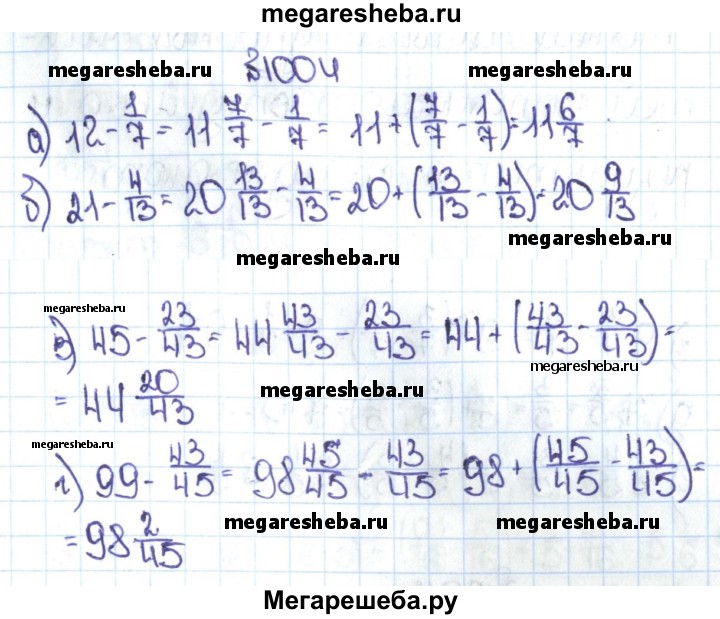 megaresheba.ru
megaresheba.ru №1004 megaresheba.ru
а) 12 - 1/7 = 11 7/7 - 1/7 = 11 + (7/7 - 1/7) = 11 6/7
б) 21 - 4/13 = 20 13/13 - 4/13 = 20 + (13/13 - 4/13) = 20 9/13
megaresheba.ru
megaresheba.ru
megaresheba.ru
в) 45 - 23/43 = 44 43/43 - 23/43 = 44 + (43/43 - 23/43) =
megaresheba.ru
= 44 20/43
megaresheba.ru
megaresheba.ru
г) 99 - 43/45 = 98 45/45 - 43/45 = 98 + (45/45 - 43/45) =
= 98 2/45
megaresheba.ru megaresheba.ru
Мегарешеба.ру